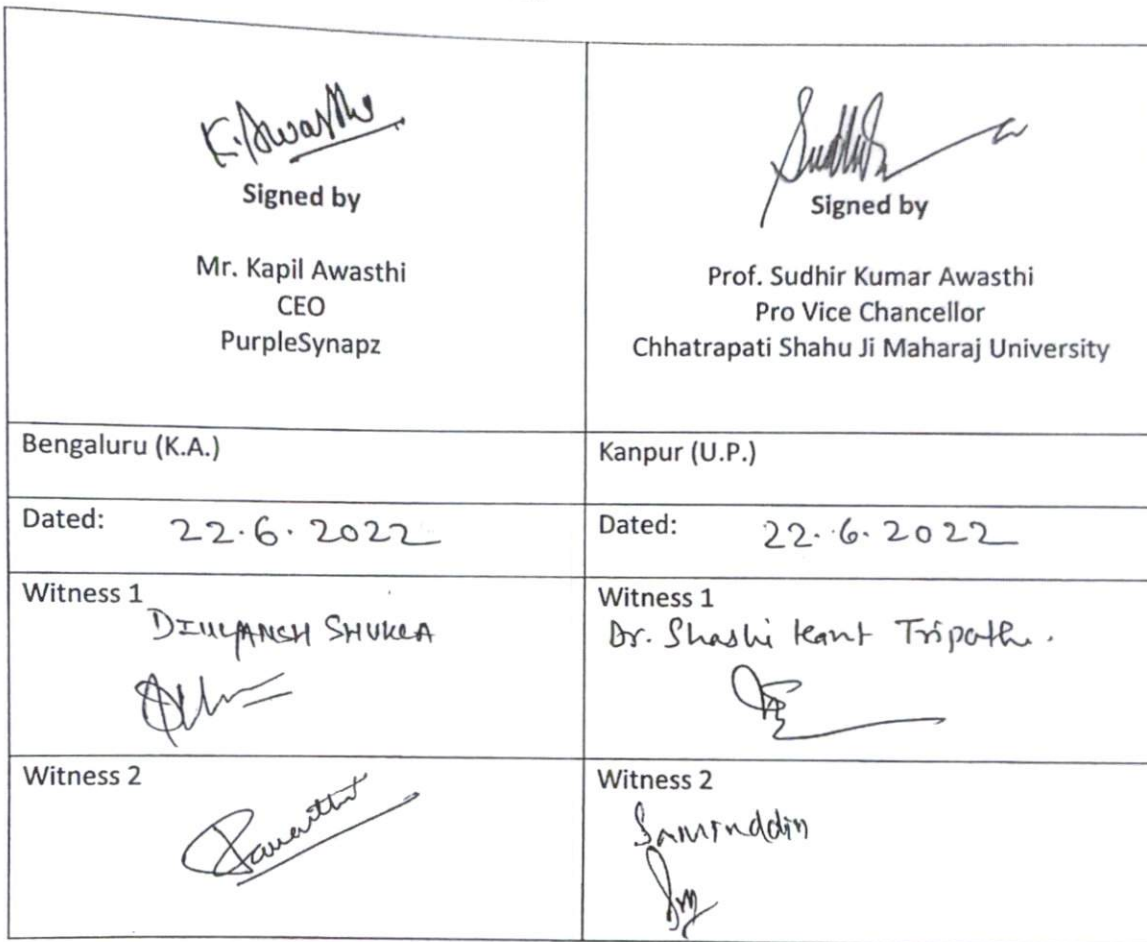 K. Awasthi
Signed by
Mr. Kapil Awasthi
CEO
PurpleSynapz
Signed by
Prof. Sudhir Kumar Awasthi
Pro Vice Chancellor
Chhatrapati Shahu Ji Maharaj University
Bengaluru (K.A.)
Kanpur (U.P.)
Dated: 22.6.2022
Dated: 22.6.2022
Witness 1
SHUKLA
Witness 1
Dr. Shashi Kant Tripathi.
Witness 2
Witness 2
Samiuddin